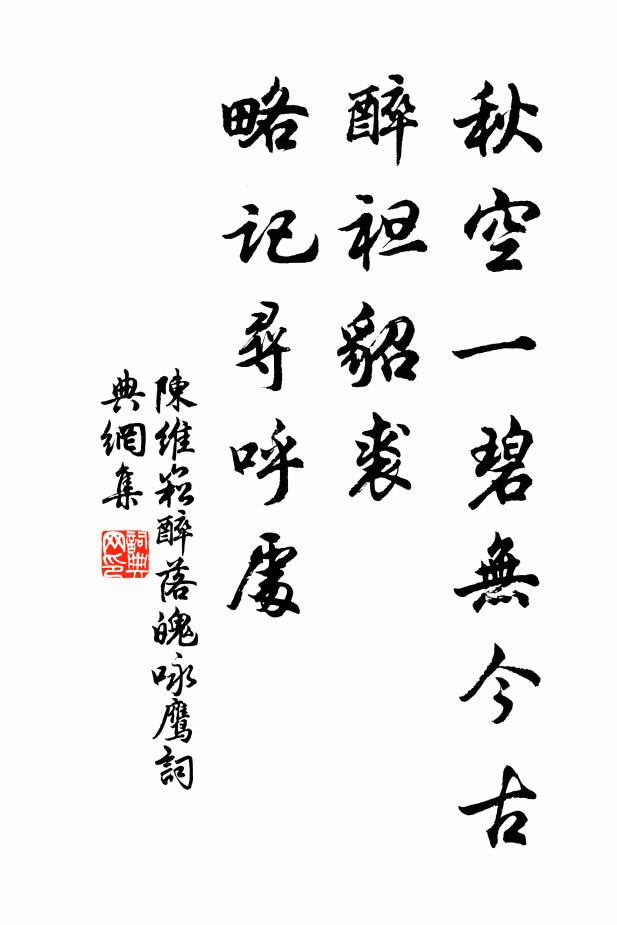 秋空一碧無今古
醉袒貂裘
略記尋呼處
陳維崧醉落魄咏鹰詞
典網集
詞典网印